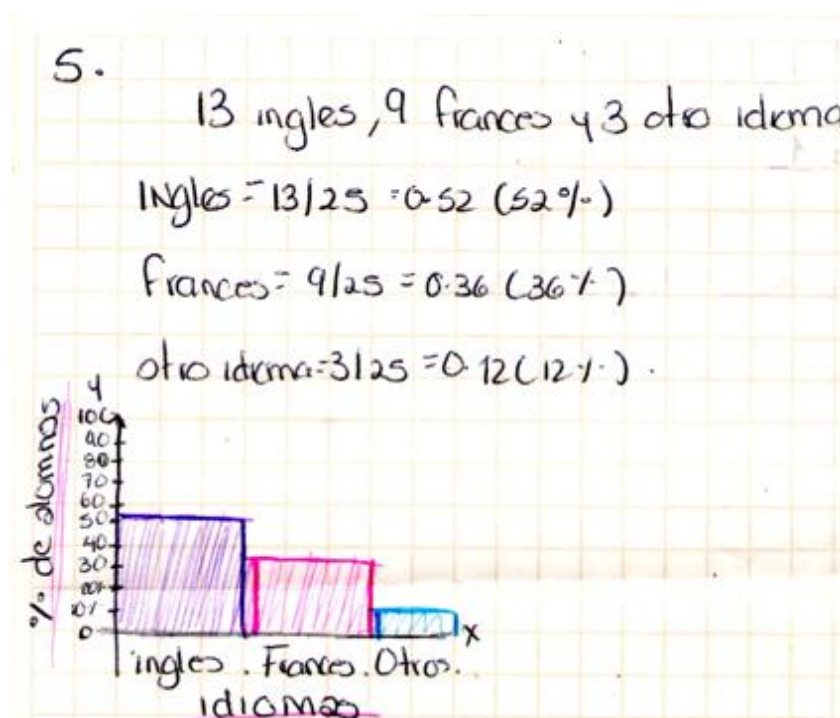 5.
13 ingles, 9 frances y 3 otro idioma
INgles = 13/25 = 0.52 (52%)
frances = 9/25 = 0.36 (36%)
otro idioma = 3/25 = 0.12 (12%).
y
% de alumnos
100
90
80
70
60
50
40
30
20%
10%
0
x
ingles. Frances. Otros.
idiomas